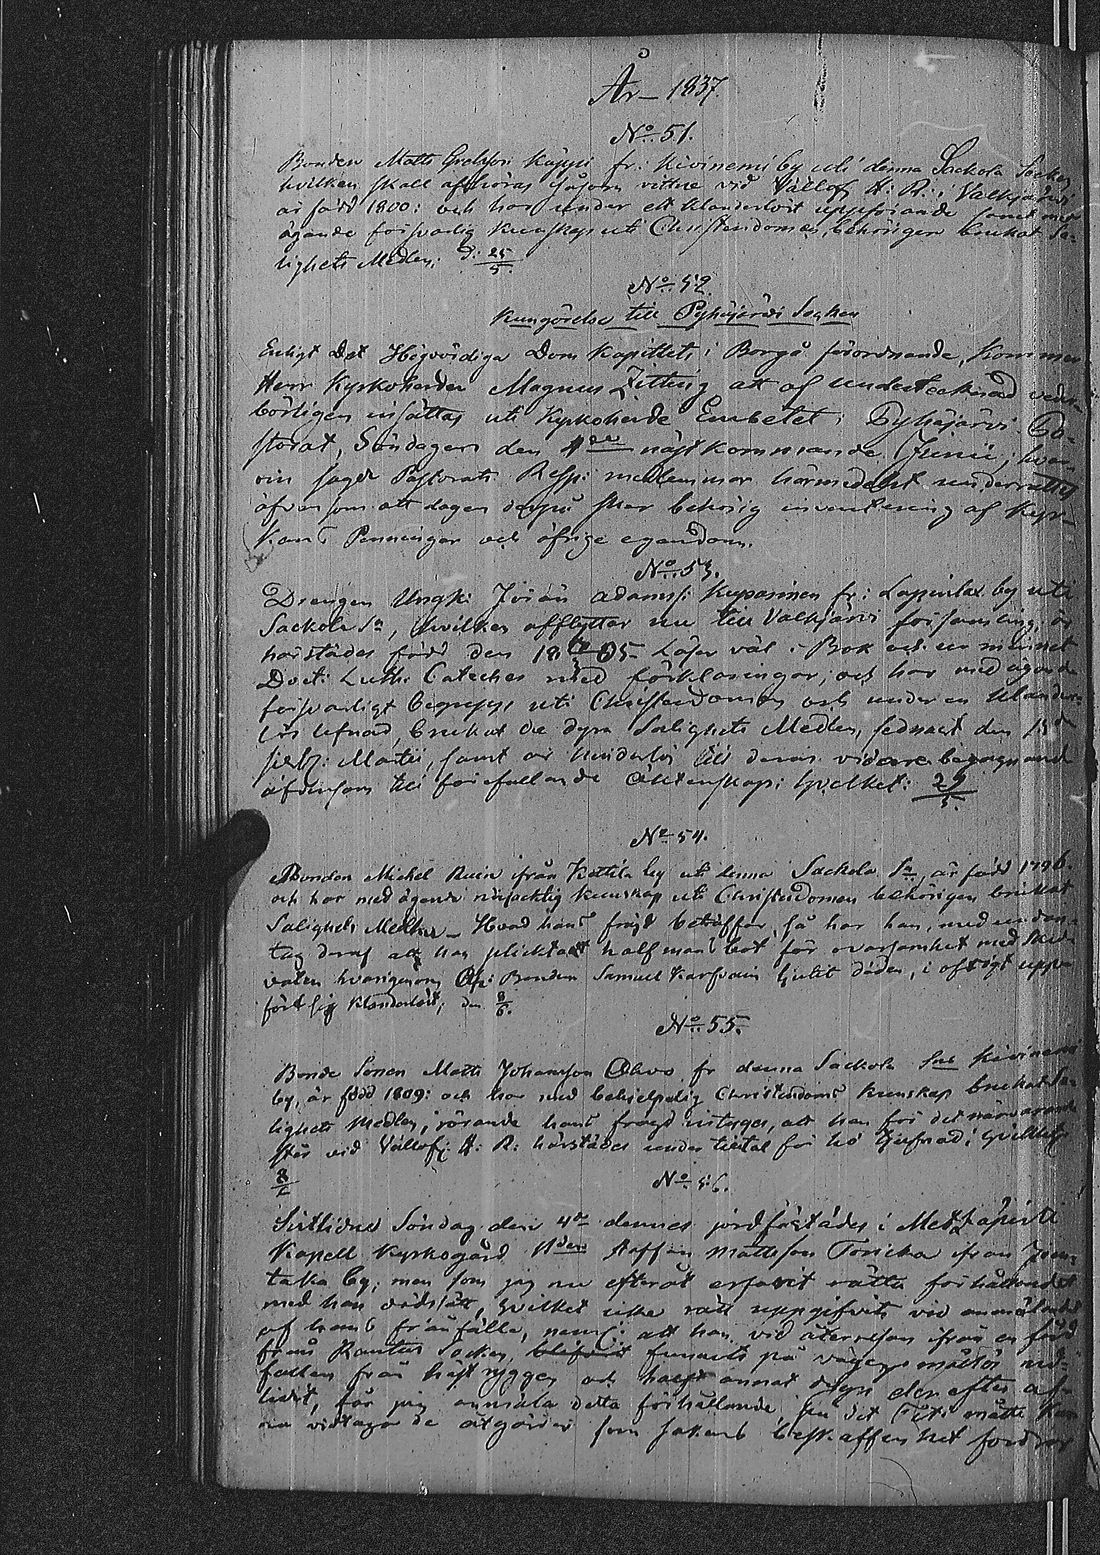 År 1837.
No 51.
Bonden Matts Käppi fr: Kivinemi by uti denna Sackola Socken
hvilken skall afhöras såsom vittne vid Vällofl. H. R: i Valkjärvi
är född 1800: och har under ett klanderlöst uppförande samt med
ägande försvarlig kunskap uti Christendomen, behörigen brukat Sa-
lighets Medlen; d: 25/5.
No 52
Kungörelse till Pyhäjärvi Socken
Enligt Det Högvördiga Dom Kapitlets i Borgå förordnande, kommer
Herr Kyrkoherden Magnus Zitting att af undertecknad veder-
börligen insättas uti Kyrkoherde Embetet i Pyhäjärvi Pa-
storat, Söndagen den 4de nästkommande Junii; hvar-
om sagde Pastorats Resp: medlemmar härmedelst underrättas
äfvensom att dagen derpå sker behörig inventering af Kyr-
kans Penningar och öfrige egendom.
No 53.
Drengen Ungk: Jöran Adamss: Kuparinen fr: Lapinlax by uti
Sackola Sn, hvilken afflyttar nu till Valkjärvi församling, är
härstädes född den 1805 Läser väl i Bok och ur minnet
Doct: Luth: Cateches med förklaringar, och har med ägande
försvarligt begrepp uti Christendomen och under en klander-
lös lefnad brukat de dyra Salighets Medlen, sednast den
Martii, samt är hinderlös till deras vidare begagnande
äfvensom till förefallande Äktenskap; hvilket: 29/5.
No 54.
Bonden Michel Ruin ifrån Kottila by uti denna Sackola Sn, är född 1796.
och har med ägande kunskap uti Christendomen behörigen brukat
Salighets Medlen – Hvad hans frägd beträffar, så har han, med undan-
tag deraf att han pliktat half mans bot för ovarsamhet med
hvarigenom Bonden Samuel Karfvain ljutit döden, i öfrigt uppe
fört sig klanderlöst, den 8/6.
No 55.
Bonde Sonen Matts Johansson Orvo fr denna Sackola Sns Kivinemi
by, är född 1809: och har med behjelpelig Christendoms kunskap brukat Sa-
lighets Medlen, rörande hans frägd intygas, att han för det närvarande
står vid Vällofl: H: R: härstädes under tilltal för tjufnad; hvilket
8/6
No 56.
Sistlidne Söndag den 4de dennes jordfästades i Metzäpirtti
Kapell Kyrkogård Staffan Mattsson Torikka ifrån
taka by; men som jag nu efteråt erfarit rätta förhållandet
med hans dödssätt, hvilket icke rätt uppgifvits vid anmälandet
af hans frånfälle, neml: att han vid återresan ifrån en färd
från Rautus Socken, blifvit funnits på vägen mållös ned-
fallen från hästryggen och half annat dygn derefter af-
lidit, får jag anmäla detta förhållande,
vidtaga de åtgärder som sakens beskaffenhet fordrar